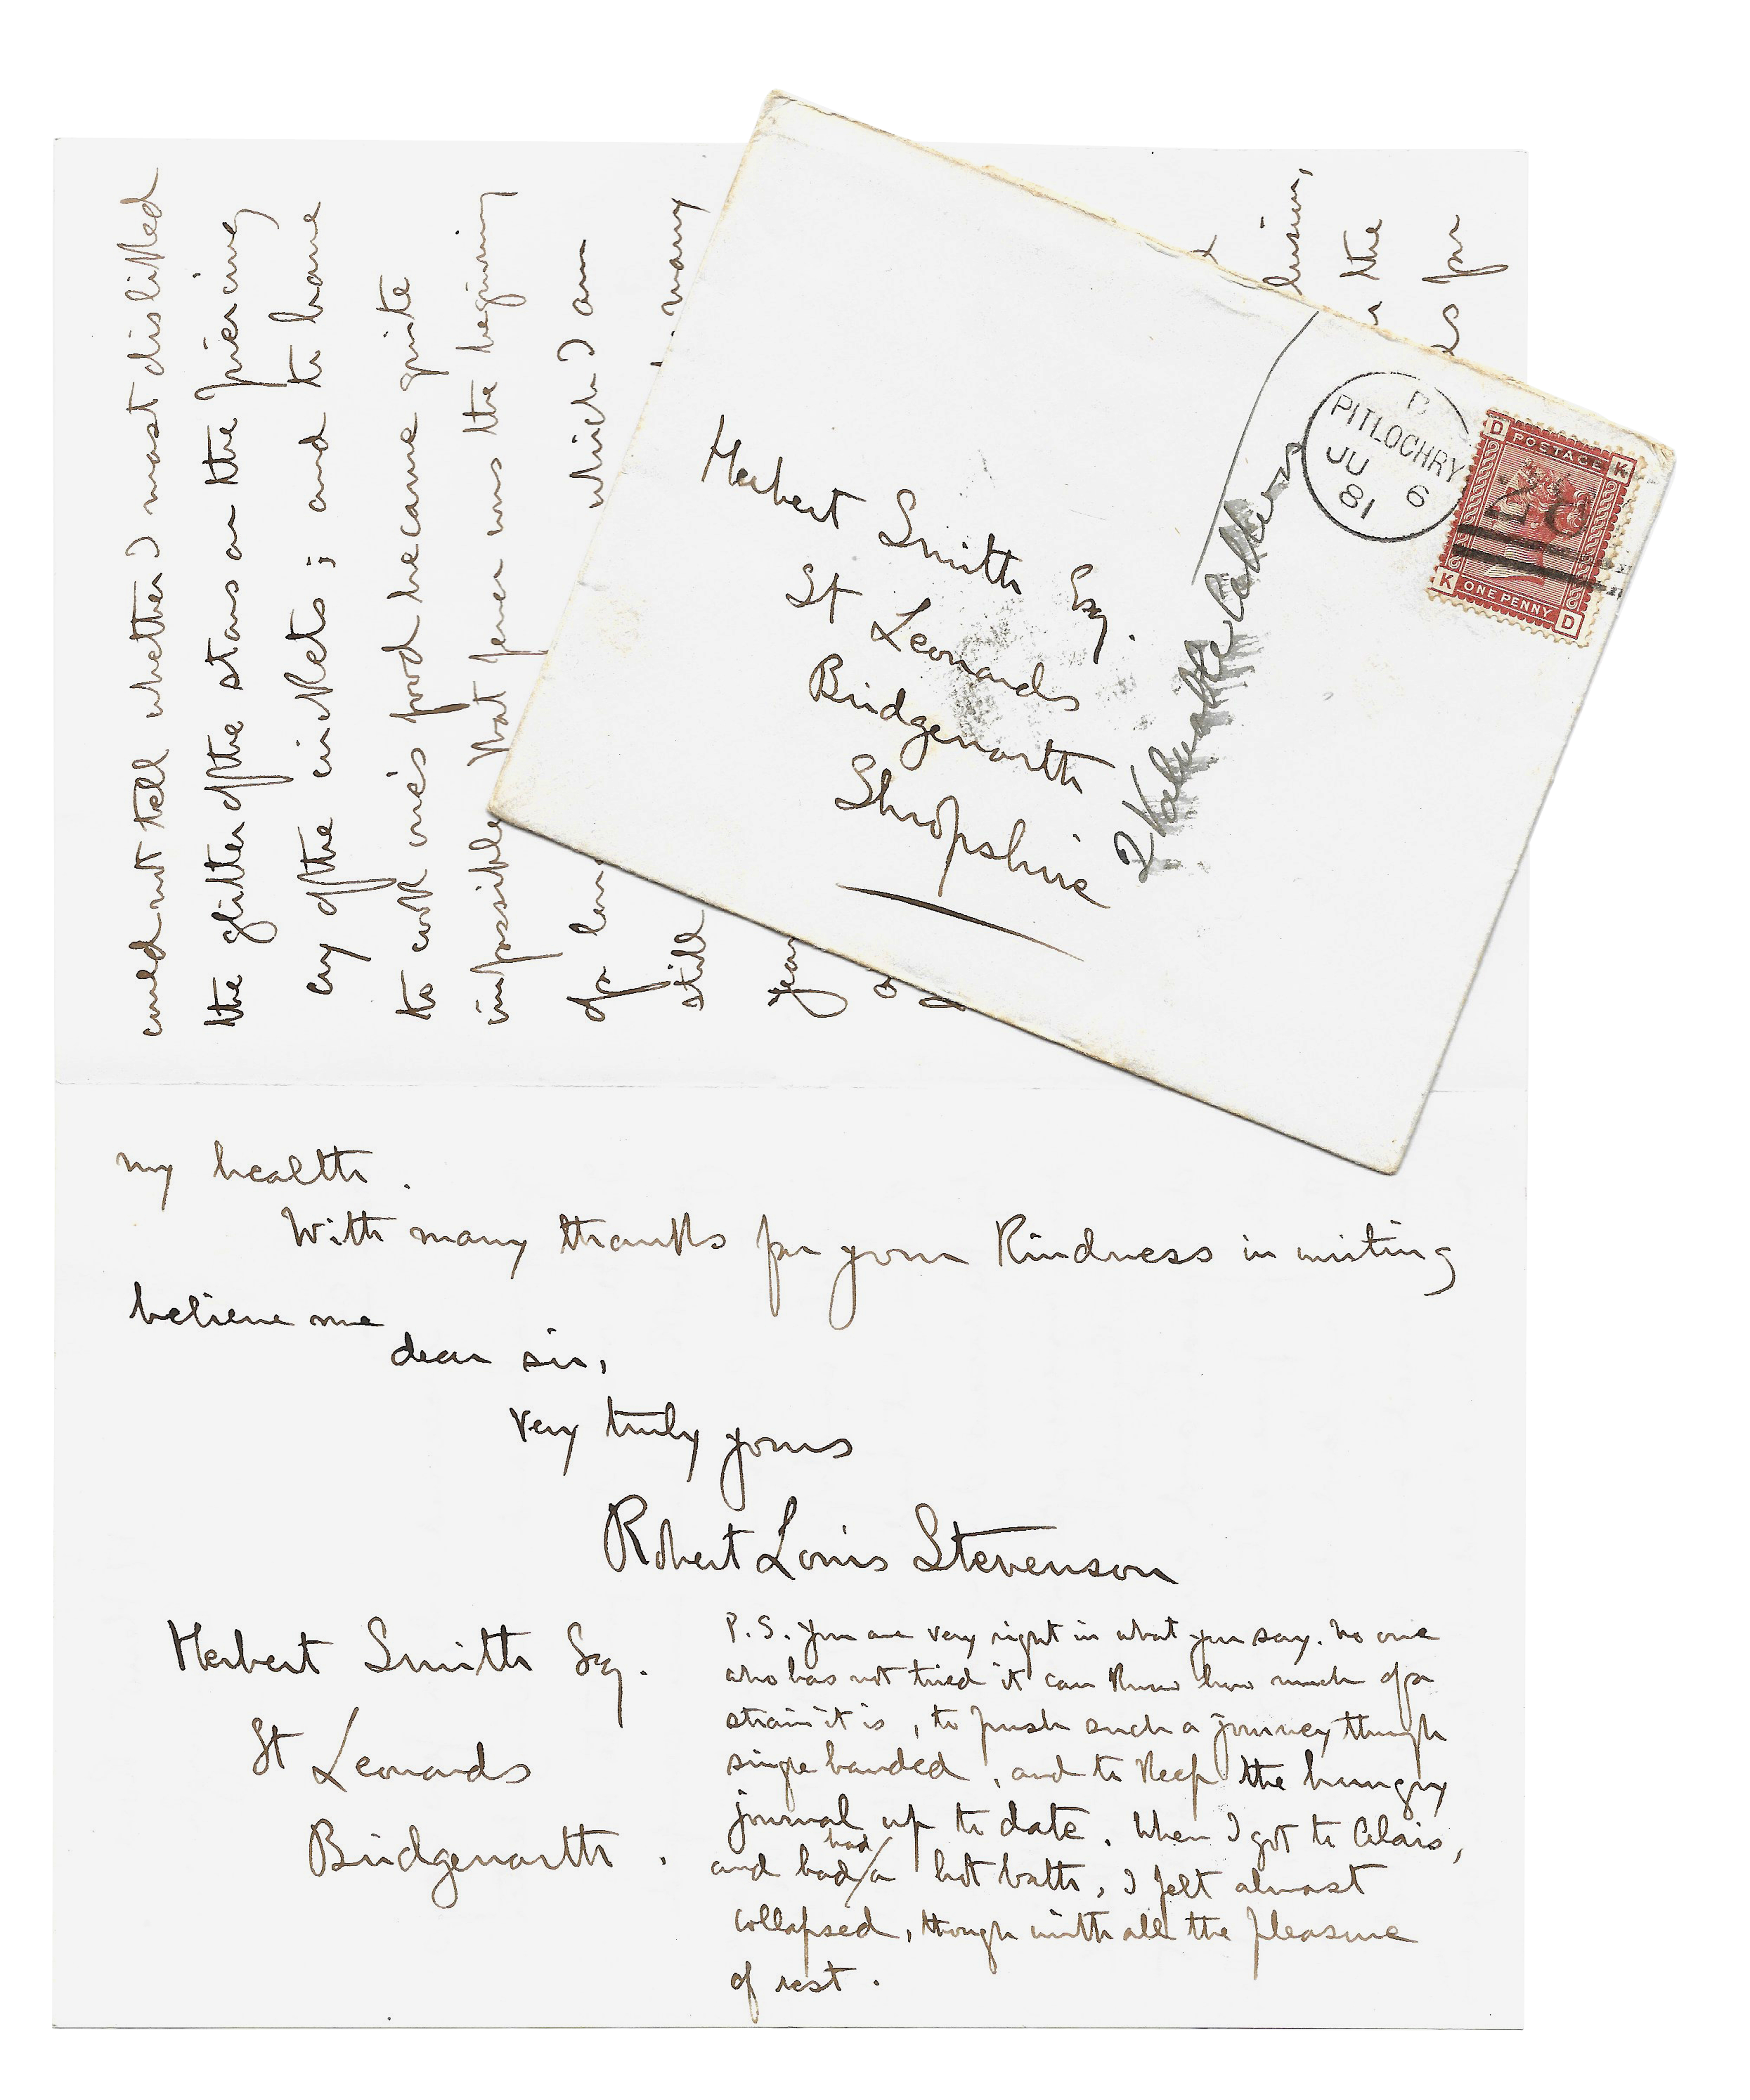 could not tell whether I most disliked
the glitter of the stars or the piercing
cry of the crickets ; and to have
to cook one's food became quite
impossible. That fever was the beginning
of a
which I am
still
many
year
the
for
Herbert Smith Esq.
St Leonards
Bridgenorth
Shropshire
2 Valuable Letters
PITLOCHRY
JU 6
81
D POSTAGE K
K ONE PENNY D
my health.
With many thanks for your kindness in writing
believe me
dear sir,
very truly yours
Robert Louis Stevenson
Herbert Smith Esq.
St Leonards
Bridgenorth.
P.S. You are very right in what you say. No one
who has not tried it can know how much of a
strain it is, to push such a journey through
single handed, and to keep the hungry
journal up to date. When I got to Calais,
and had had a hot bath, I felt almost
collapsed, though with all the pleasure
of rest.